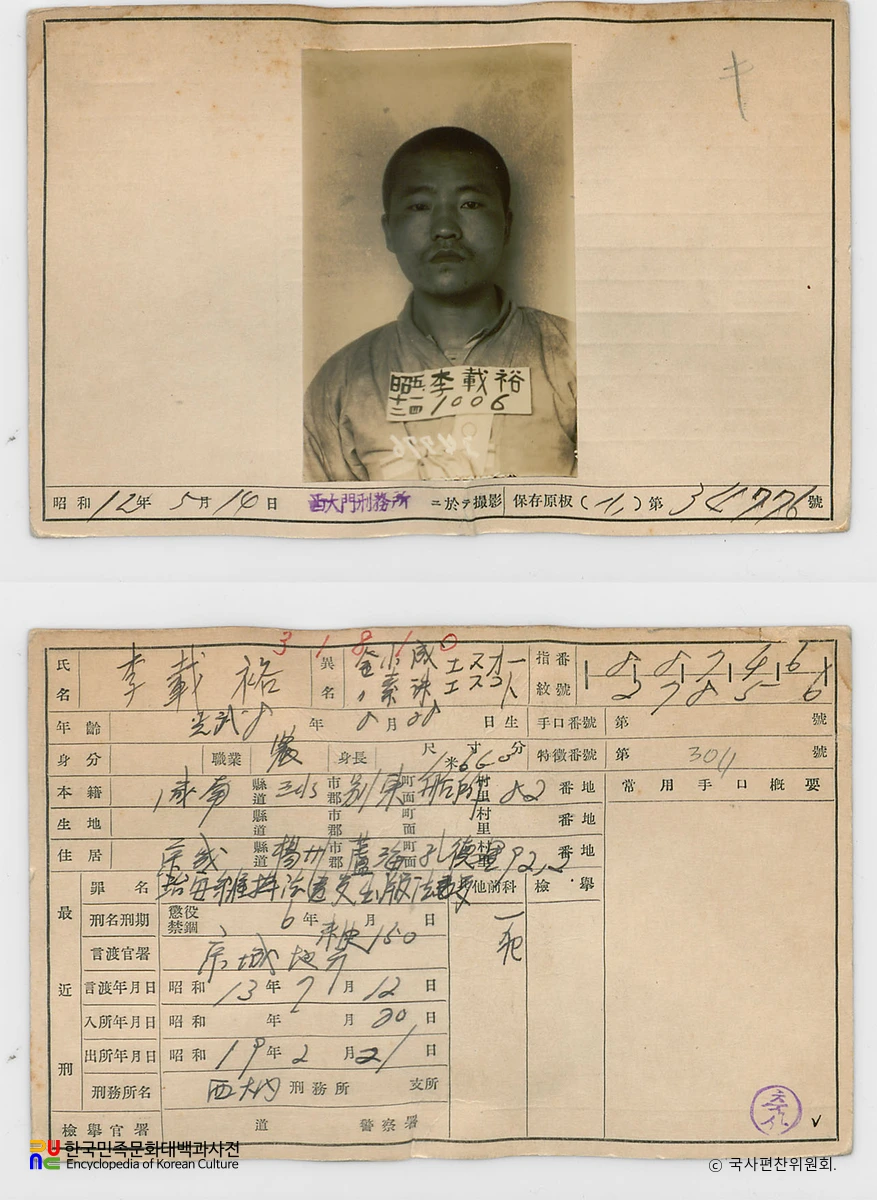 昭五.一四 李載裕
十二 1006
34776
昭和12年5月14日 西大門刑務所 ニ於テ撮影 保存原板( )第34776號
31810
氏名 李載裕 異名 指紋番號
年齡 光武 年8月 日生 手口番號 第 號
身分 職業 農 身長 尺寸分 米 特徵番號 第 304 號
本籍 縣道 三水 市郡 別東 町面 船所 村里 82 番地 常用手口槪要
生地 縣道 市郡 町面 村里 番地
住居 京城 縣道 楊州 市郡 蘆海 町面 孔德里 村里 番地
最近刑
罪名 治安維持法違反出版法違反 其他前科 檢擧
刑名刑期 懲役 禁錮 6年 月 日 未決150 一犯
言渡官署 京城地方
言渡年月日 昭和13年7月12日
入所年月日 昭和 年 月 20日
出所年月日 昭和19年2月21日
刑務所名 西大門 刑務所 支所
檢擧官署 道 警察署
한국민족문화대백과사전
Encyclopedia of Korean Culture
© 국사편찬위원회.